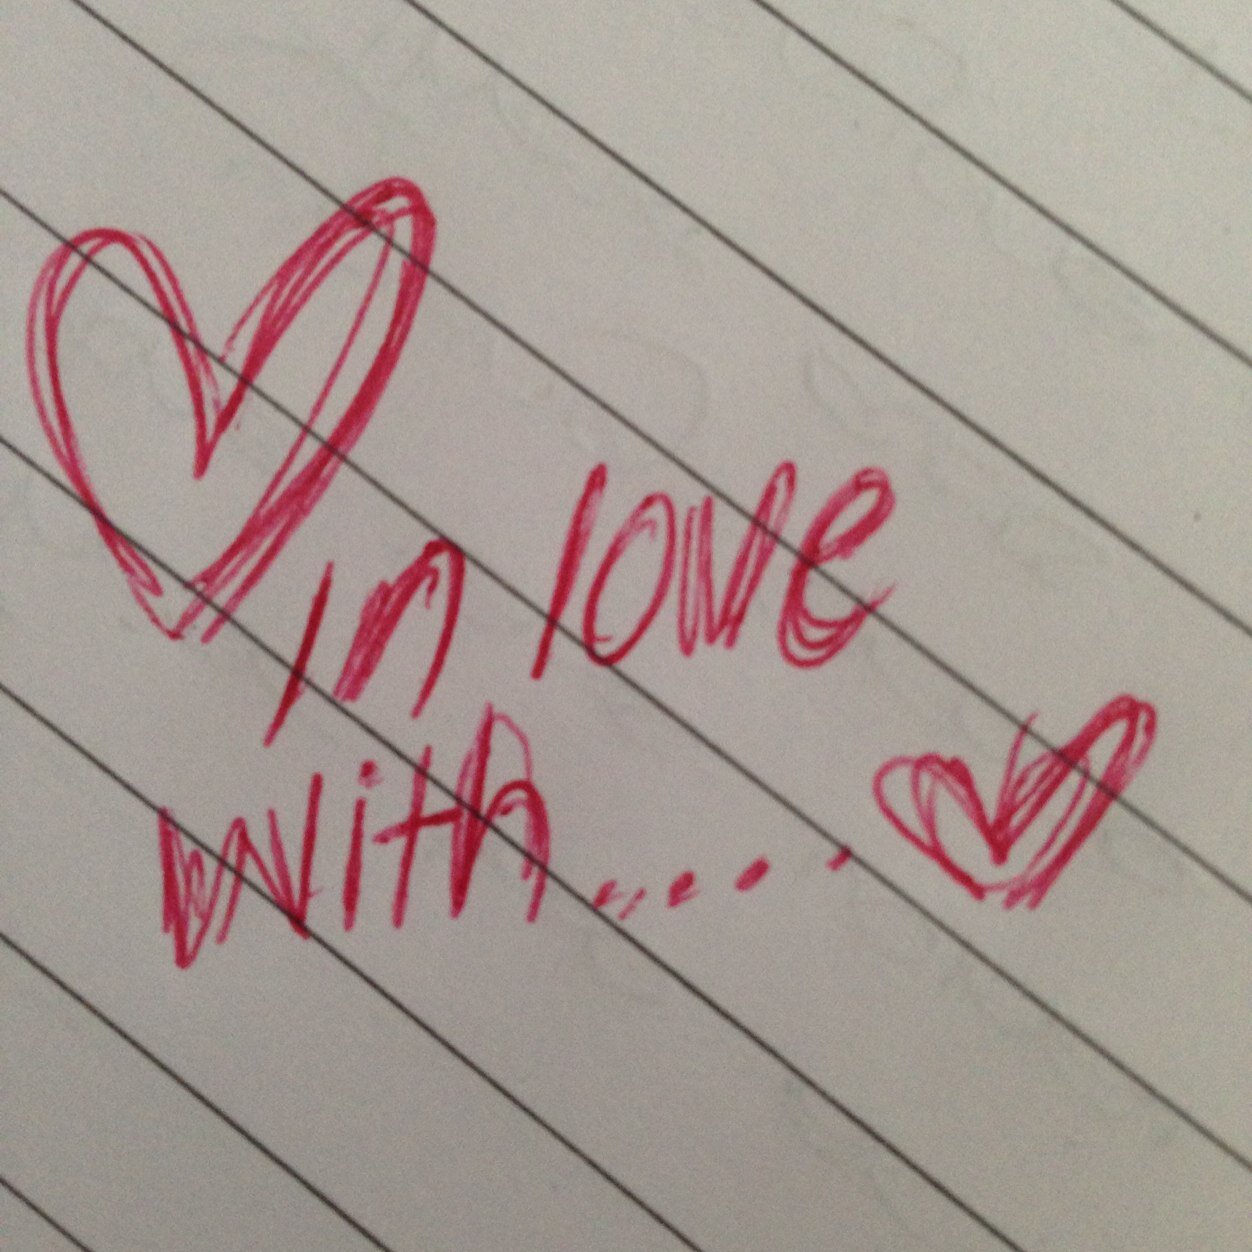 in love
with....